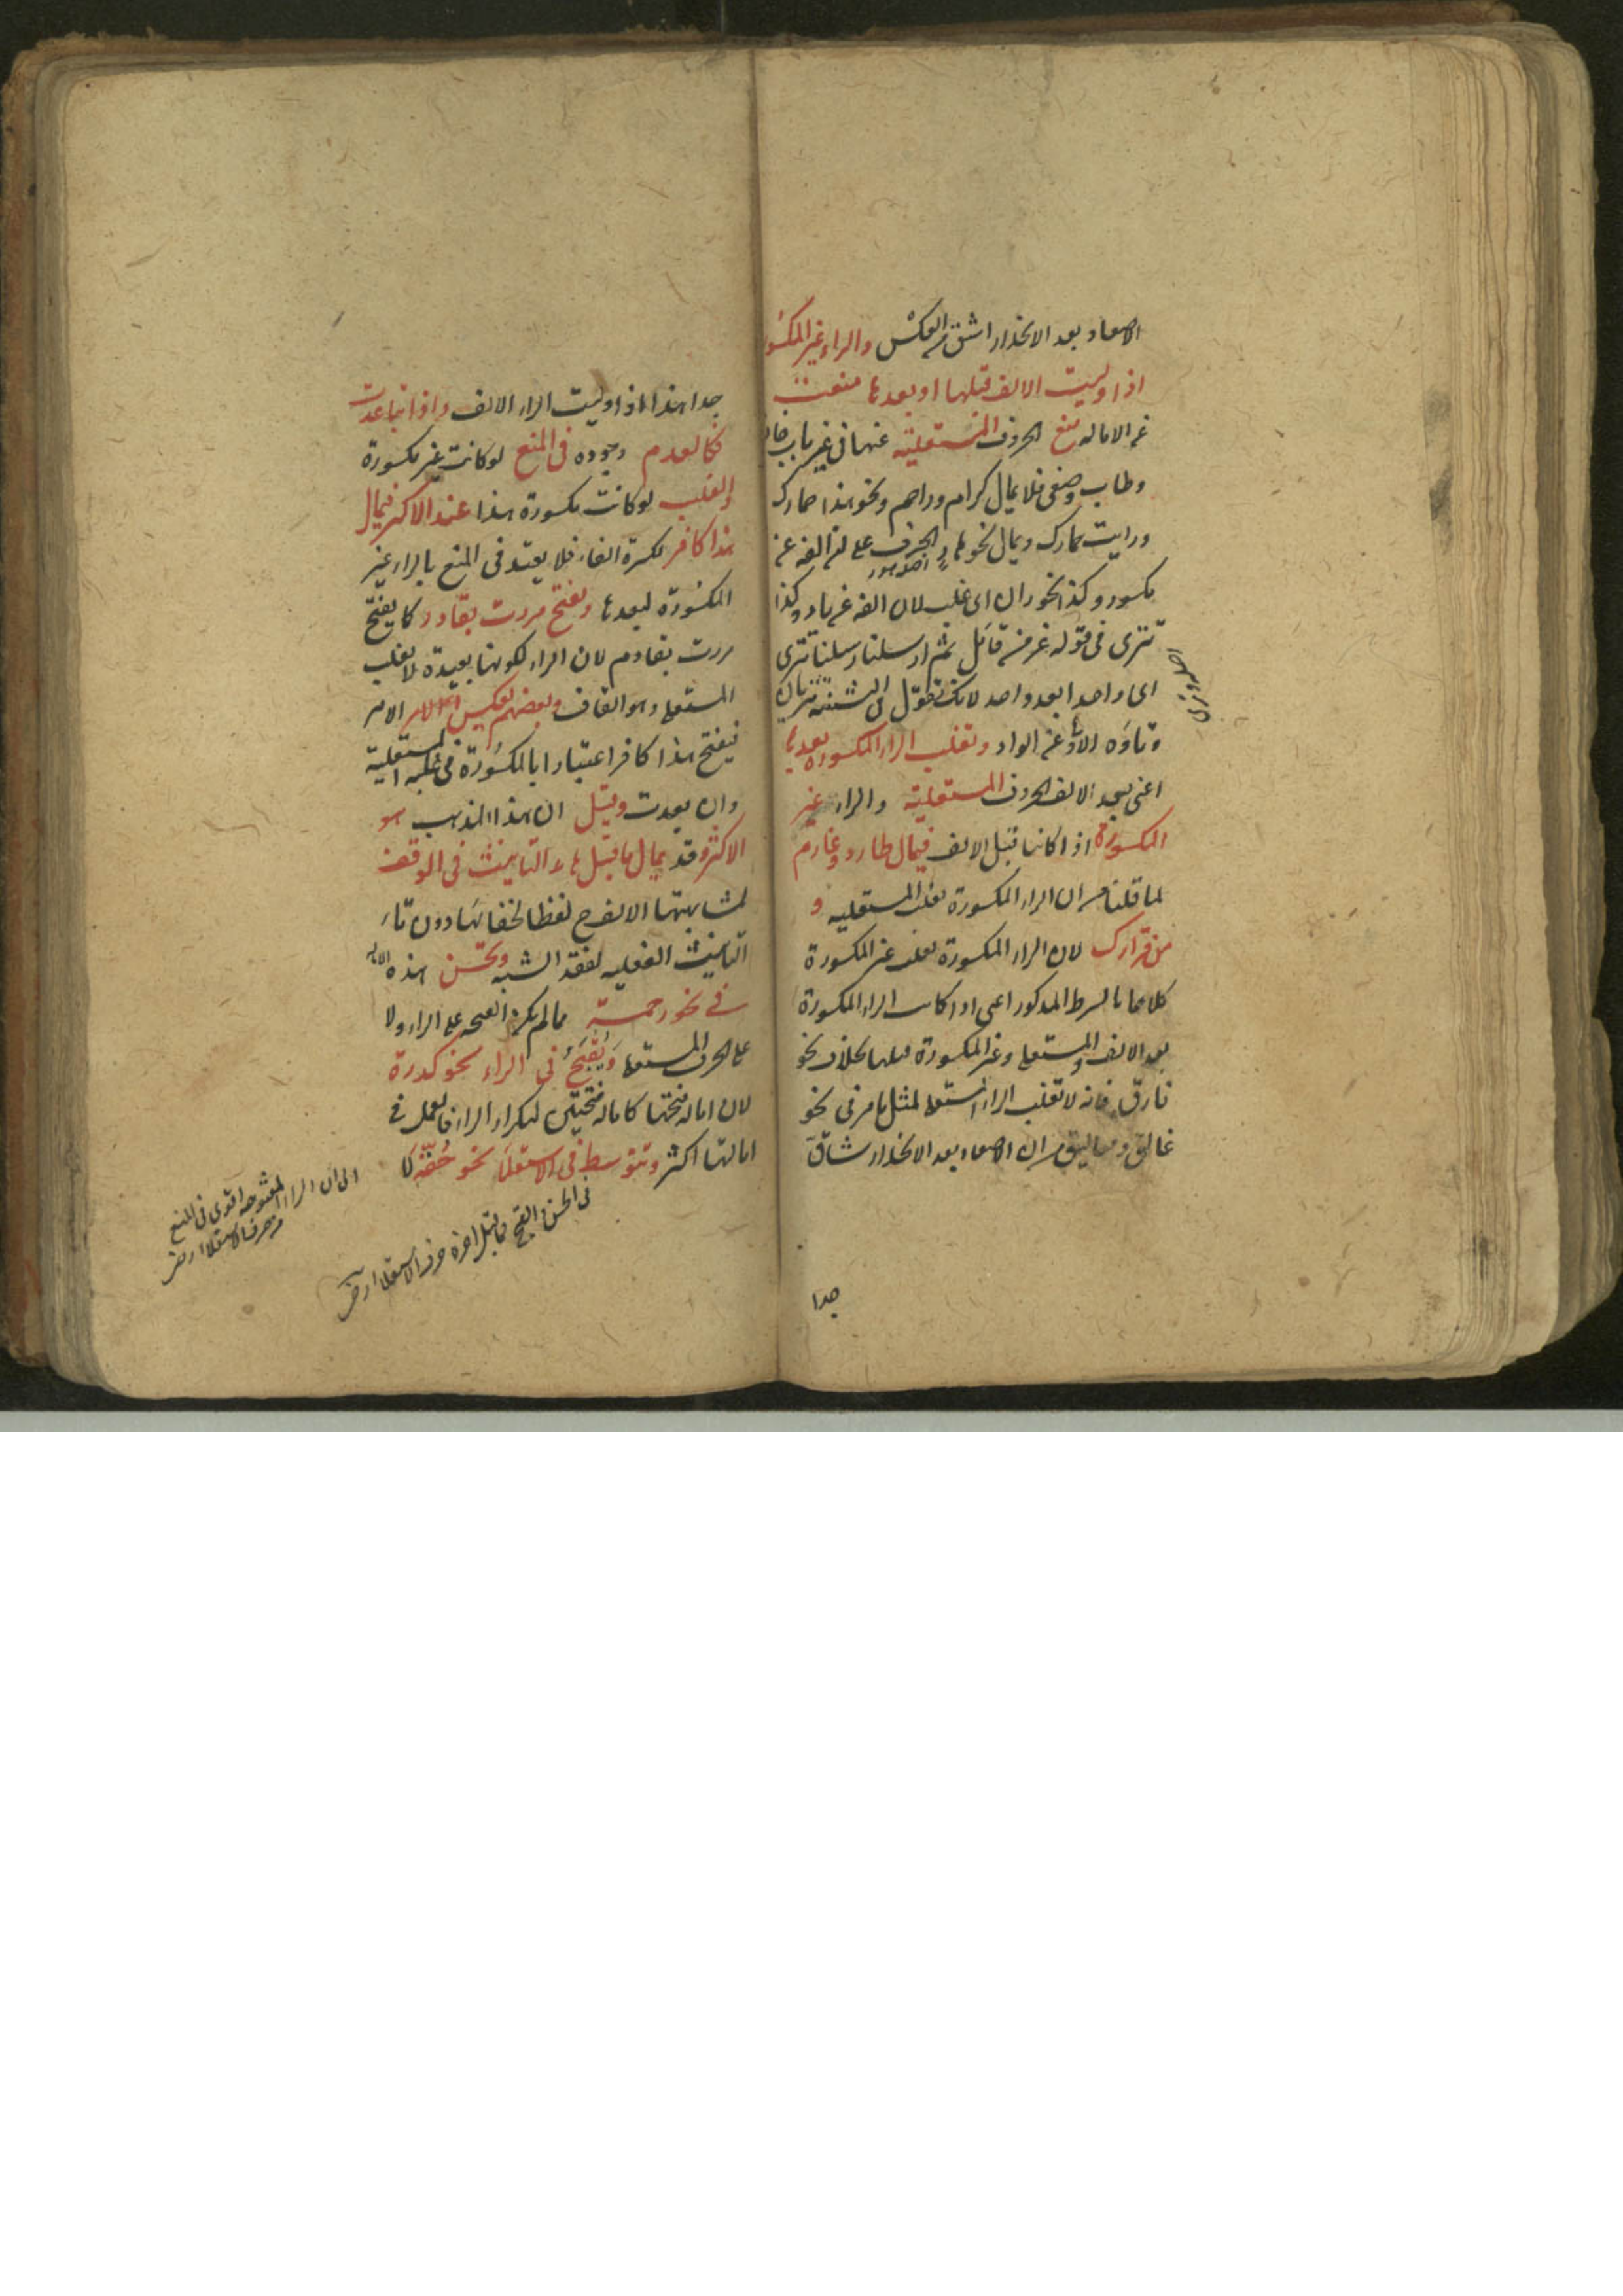 الاصعاد بعد الانحدار اشق من العكس والراء غير المكسو
اذا وليت الالف قبلها او بعدها منعت
عن الاماله منع الحروف المستعلية عنها في غير باب خا
وطاب وصفى فلا يمال كرام وراحم ونحو هذا حمارك
ورايت حمارك ويمال نحو الحرف على ان الفه عن
مكسور وكذا نحو ران اى غلب لان الفه عن ياء وكذا
تترى في قوله عز من قائل ثم ارسلنا رسلنا تترى
اى واحدا بعد واحد لانك تقول في التثنية تتريان
وتاؤه الاولى عن الواو وتغلب الراء المكسورة بعدها
اعنى بعد الالف الحروف المستعلية والراء غير
المكسورة اذا كانتا قبل الالف فيمال طارد وغارم
لما قلنا من ان الراء المكسورة تغلب المستعليه و
من قرارك لان الراء المكسورة تغلب غير المكسورة
كلاهما بالشرط المذكور اعنى اذا كانت الراء المكسورة
بعد الالف والمستعلى وغير المكسورة قبلها بخلاف نحو
فارق فانه لا تغلب الراء المستعلى لمثل ما مر فى نحو
غالق ومعاليق من ان الاصعاد بعد الانحدار شاق
جدا
جدا هذا اذا وليت الراء الالف واذا تباعدت
فكالعدم وجوده فى المنع لو كانت غير مكسورة
والغلب لو كانت مكسورة هذا عند الاكثر فيمال
هذا كافر لكسرة الفاء فلا يعتد فى المنع بالراء غير
المكسورة لبعدها ويفتح مررت بقادر كما يفتح
مررت بقادم لان الراء لكونها بعيدة لا تغلب
المستعلى وهو القاف وبعضهم يعكس الامر
فيفتح هذا كافر اعتبارا بالمكسورة فى غلبه المستعلية
وان بعدت وقيل ان هذا المذهب هو
الاكثر وقد يمال ما قبل هاء التانيث فى الوقف
لمشابهتها الالف لفظا لخفائها دون تاء
التانيث الفعليه لفقد الشبه وتحسن هذه الاماله
في نحو رحمة مما لم يكن الفتحه على الراء ولا
على الحرف المستعلى ويقبح فى الراء نحو كدرة
لان امالة فتحتها كامالة فتحتين لتكرار الراء فالعمل فى
امالتها اكثر وتتوسط فى الاستعلاء نحو حقة
فى الحسن والقبح
الى ان الراء المفتوحه اقوى فى المنع
من حرف الاستعلاء